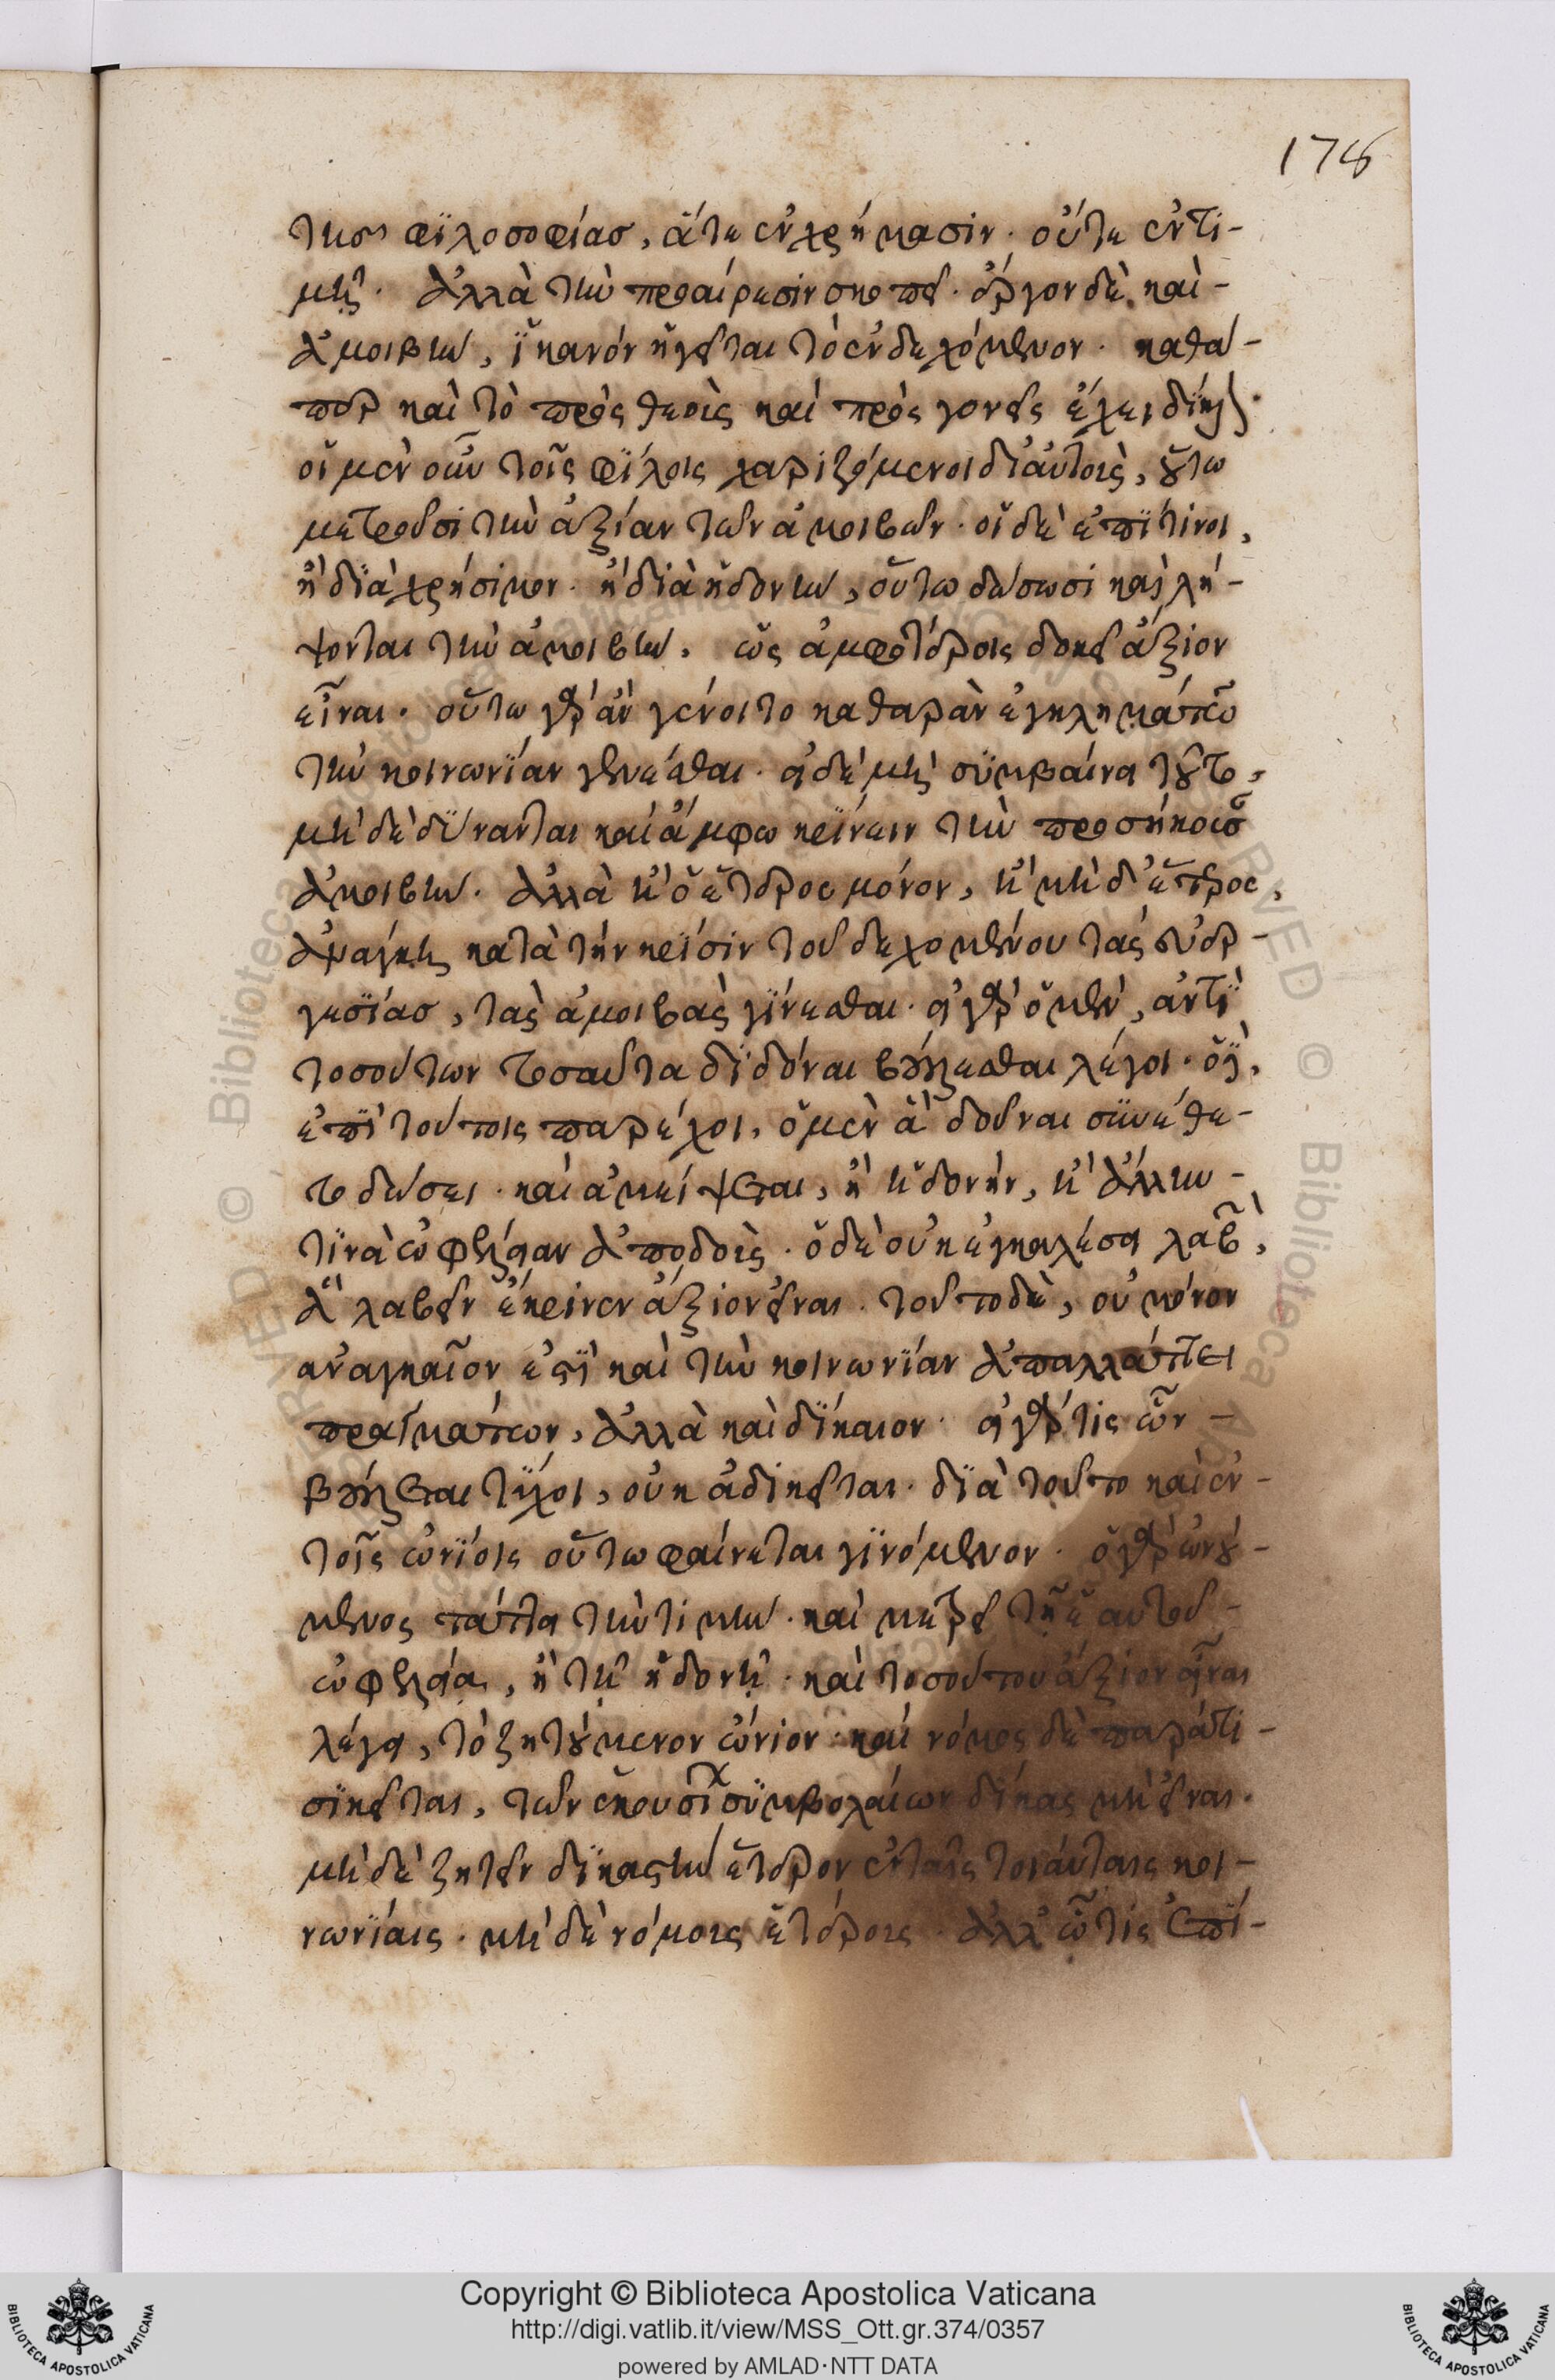 178
τῆς φϊλοσοφίας, ἅτε ἐν χρήμασιν. οὔτε ἐν τϊ-
μῆ. ἀλλὰ τὴν προαίρεσιν σκοπεῖ. ἔργον δὲ καὶ-
ἀμοιβὴν, ἵκανόν ἡγεῖται τὸ ἐνδεχόμενον. καθά-
περ καὶ τὸ πρὸς θεοὺς καί πρὸς γονεῖς ἔχει δίκην.
οἵ μὲν οὖν τοῖς φΐλοις χαριζόμενοι δϊ' ἀυτοὺς, οὕτω
μετροῦσι τὴν ἀξίαν τῶν ἀμοιβῶν. οἵ δὲ ἐπΐ τινι,
ἢ δϊὰ χρήσιμον. ἢ διὰ ἡδονὴν, οὕτω δώσωσι καὶ λή-
ψονται τὴν ἀμοιβὴν. ὡς ἀμφοτέροις δοκεῖ ἄξιον
εἶναι. οὕτω γὰρ ἂν γένοιτο καθαρὰν ἐγκλημάτων
τὴν κοινωνΐαν γενέσθαι. εἰ δὲ μὴ συμβαίνει τοῦτο,
μὴ δὲ δύνανται καὶ ἄμφω κρίνειν τὴν προσήκουσαν
ἀμοιβὴν. ἀλλὰ ἢ ὅ ἕτερος μόνον, ἢ μὴ δ' ἕτερος,
ἀνάγκη κατὰ τήν κρίσιν τοῦ δεχομένου τάς εὐερ-
γεσΐας, τὰς ἀμοιβὰς γΐνεσθαι. εἰ γὰρ ὅ μὲν, ἀντῒ
τοσούτων τοσαῦτα δϊδόναι βούλεσθαι λέγοι. ὅ δὲ,
ἐπῒ τούτοις παρέχοι, ὅ μὲν ἃ δοῦναι συνέθε-
το δώσει. καὶ ἀμείψεται, ἢ ἡδονήν, ἢ ἄλλην-
τϊνὰ ὠφέλειαν ἀποδοὺς. ὅ δὲ οὐκ ἐγκαλέσει λαβὼν,
ἃ λαβεῖν ἔκρινεν ἄξιον εἶναι. τοῦτο δὲ, οὐ μόνον
αναγκαῖον ἐστῒ καὶ τὴν κοινωνΐαν ἀπαλλάττει
πραγμάτων, ἀλλὰ καὶ δΐκαιον. εἰ γὰρ τις ὧν-
βούλεται τύχοι, οὐκ ἀδικεῖται. δϊὰ τοῦτο καὶ ἐν-
τοῖς ὠνΐοις οὕτω φαίνεται γϊνόμενον. ὅ γὰρ ὠνού-
μενος τάττει τὴν τιμὴν. καὶ μετρεῖ τῆ ἑαυτοῦ-
ὠφελεία, ἢ τῆ ἡδονῆ. καὶ τοσούτου ἄξιον εἶναι
λέγει, τὸ ζητούμενον ὤνιον. καί νόμος δὲ παρά τι-
σϊ κεῖται, τῶν ἑκουσίων συμβολαίων δίκας μὴ εἶναι.
μὴ δὲ ζητεῖν δϊκαστὴν ἕτερον ἐν ταῖς τοιάυταις κοι-
νωνΐαις. μὴ δὲ νόμοις ἑτέροις. ἀλλ' ὧ τίς ἐπΐ-
Copyright © Biblioteca Apostolica Vaticana
http://digi.vatlib.it/view/MSS_Ott.gr.374/0357
powered by AMLAD·NTT DATA